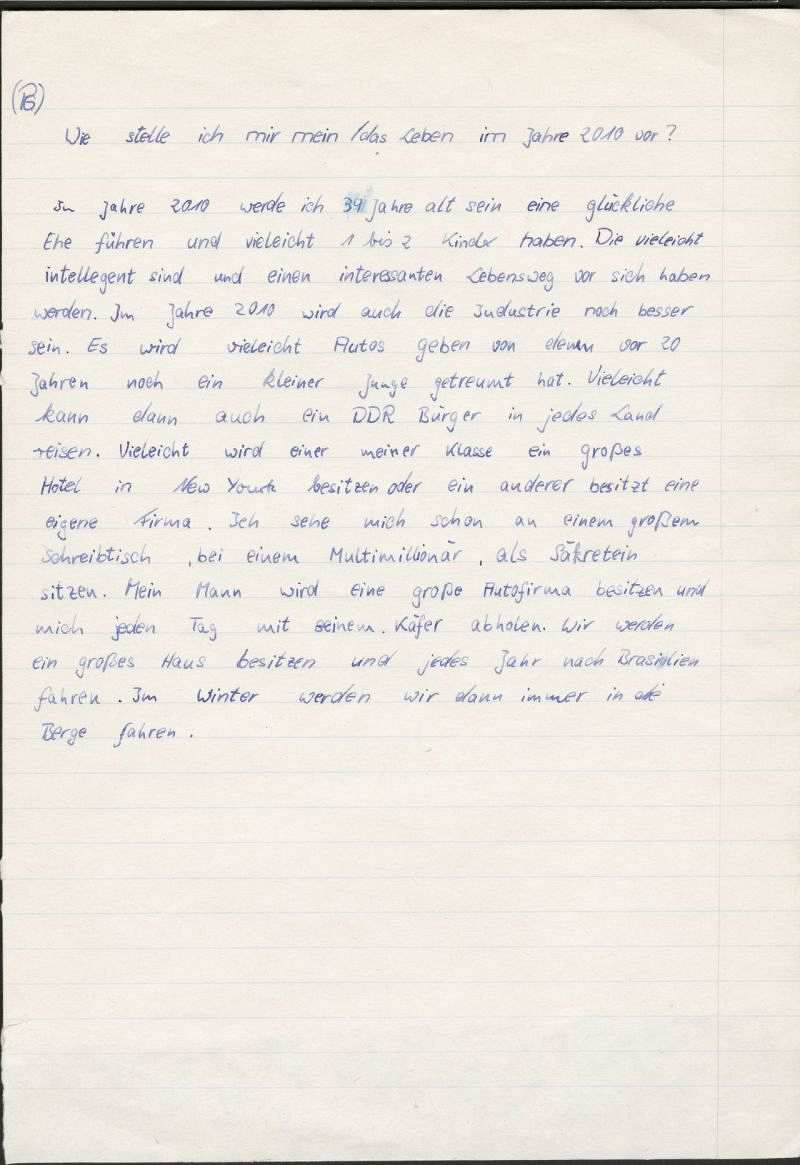 (B)
Wie stelle ich mir mein/das Leben im Jahre 2010 vor?
Im Jahre 2010 werde ich 39 Jahre alt sein eine glückliche
Ehe führen und vieleicht 1 bis 2 Kinder haben. Die vieleicht
intellegent sind und einen interessanten Lebensweg vor sich haben
werden. Im Jahre 2010 wird auch die Industrie noch besser
sein. Es wird vieleicht Autos geben von denen vor 20
Jahren noch ein kleiner Junge getreumt hat. Vieleicht
kann dann auch ein DDR Bürger in jedes Land
reisen. Vieleicht wird einer meiner Klasse ein großes
Hotel in New Yourk besitzen oder ein anderer besitzt eine
eigene Firma. Ich sehe mich schon an einem großem
Schreibtisch, bei einem Multimillionär, als Säkretein
sitzen. Mein Mann wird eine große Autofirma besitzen und
mich jeden Tag mit seinem Käfer abholen. Wir werden
ein großes Haus besitzen und jedes Jahr nach Brasilien
fahren. Im Winter werden wir dann immer in die
Berge fahren.